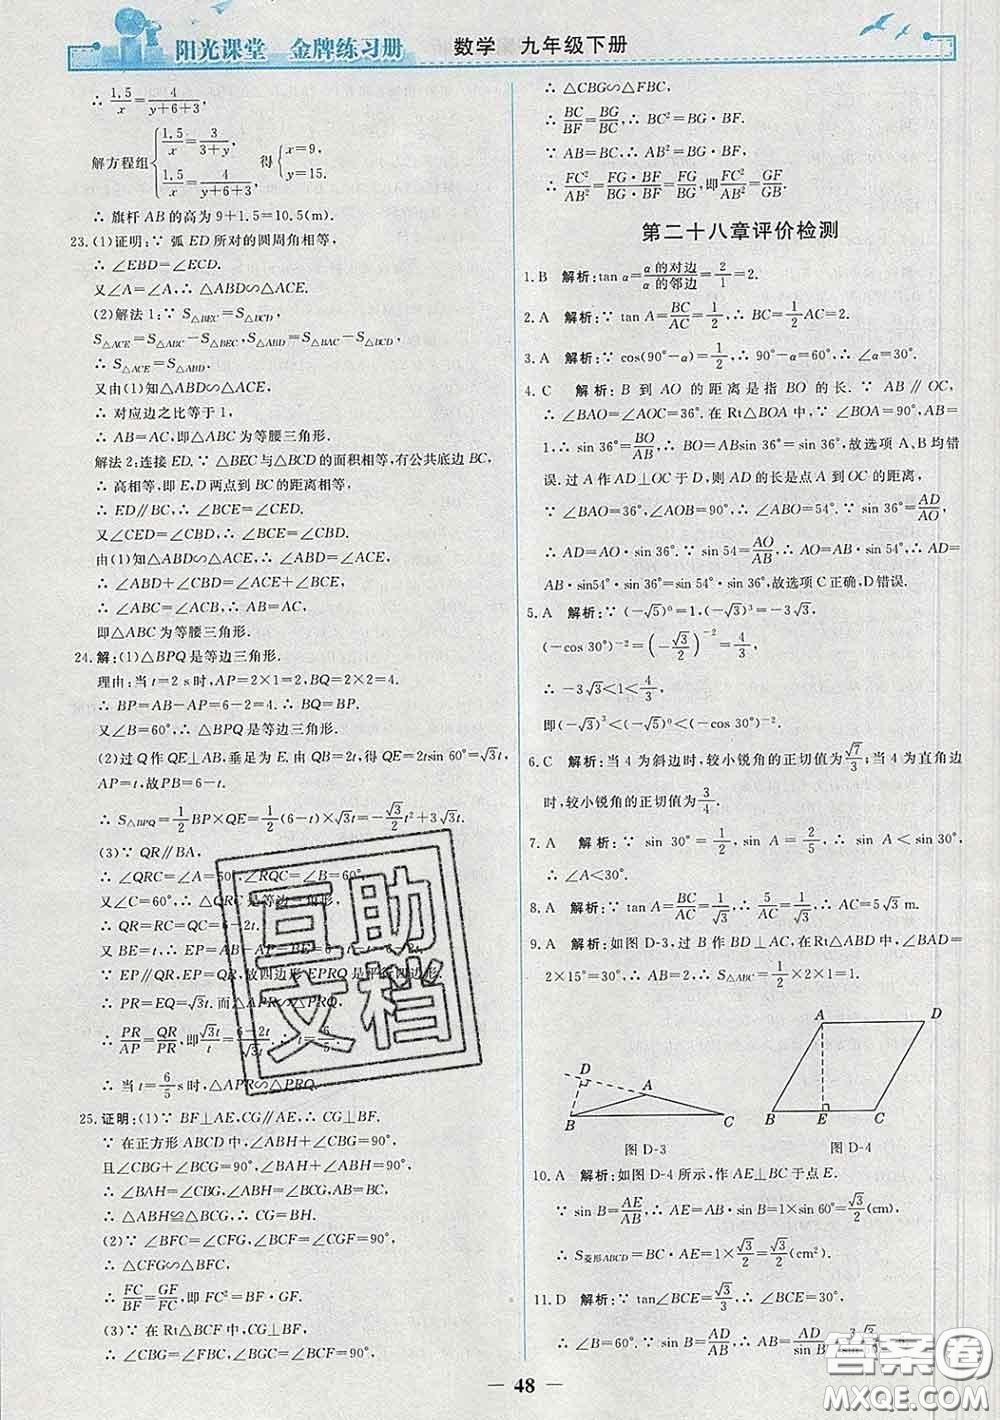 阳光课堂 金牌练习册 数学 九年级下册
∴ 1.5/x=4/(y+6+3),
解方程组{1.5/x=3/(3+y), 1.5/x=4/(y+6+3), 得{x=9, y=15.
∴ 旗杆 AB 的高为 9+1.5=10.5(m).
23.(1)证明:∵ 弧 ED 所对的圆周角相等,
∴ ∠EBD=∠ECD.
又∠A=∠A,∴ △ABD∽△ACE.
(2)解法 1:∵ S△BEC=S△BCD,
S△ACE=S△ABC-S△BEC,S△ABD=S△BAC-S△BCD,
∴ S△ACE=S△ABD.
又由(1)知△ABD∽△ACE,
∴ 对应边之比等于 1,
∴ AB=AC,即△ABC 为等腰三角形.
解法 2:连接 ED.∵ △BEC与△BCD的面积相等,有公共底边 BC,
∴ 高相等,即 E,D 两点到 BC 的距离相等,
∴ ED∥BC,∴ ∠BCE=∠CED.
又∠CED=∠CBD,∴ ∠BCE=∠CBD,
由(1)知△ABD∽△ACE,
∴ ∠ABD+∠CBD=∠ACE+∠BCE,
∴ ∠ABC=∠ACB,∴ AB=AC,
即△ABC 为等腰三角形.
24.解:(1)△BPQ是等边三角形.
理由:当 t=2 s 时,AP=2×1=2,BQ=2×2=4.
∴ BP=AB-AP=6-2=4. ∴ BQ=BP.
又∠B=60°,∴ △BPQ 是等边三角形.
(2)过 Q 作 QE⊥AB,垂足为 E. 由 QB=2t,得 QE=2tsin 60°=√3t,
AP=t,故 PB=6-t.
∴ S△BPQ=1/2 BP×QE=1/2(6-t)×√3t=-√3/2 t²+3√3t.
(3)∵ QR∥BA,
∴ ∠QRC=∠A=60°,∠RQC=∠B=60°.
又∠C=60°,∴ △QRC 是等边三角形,
∴ QR=RC=QC=6-2t.
又 BE=t,∴ EP=AB-AP-BE=6-2t.
∵ EP∥QR,EP=QR,故四边形 EPRQ 是平行四边形.
∴ PR=EQ=√3t.而△APR∽△PRQ,
∴ PR/AP=QR/PR,即√3t/t=(6-2t)/√3t,∴ t=6/5.
∴ 当 t=6/5 s时,△APR∽△PRQ.
25.证明:(1)∵ BF⊥AE,CG∥AE,∴ CG⊥BF.
∵ 在正方形 ABCD 中,∠ABH+∠CBG=90°,
且∠CBG+∠BCG=90°,∠BAH+∠ABH=90°,
∴ ∠BAH=∠CBG,∠ABH=∠BCG,
∴ △ABH≌△BCG,∴ CG=BH.
(2)∵ ∠BFC=∠CFG,∠BCF=∠CGF=90°,
∴ △CFG∽△BFC,
∴ FC/BF=GF/FC,即 FC²=BF·GF.
(3)∵ 在 Rt△BCF 中,CG⊥BF,
∴ ∠CBG=∠FBC,∠CGB=∠FCB=90°,
∴ △CBG∽△FBC,
∴ BC/BF=BG/BC,∴ BC²=BG·BF.
∵ AB=BC,∴ AB²=BG·BF,
∴ FC²/AB²=FG·BF/BG·BF=FG/BG,即FC²/AB²=GF/GB.
第二十八章评价检测
1.B 解析:tan α=α的对边/α的邻边=2/1=2.
2.A 解析:∵ tan A=BC/AC=1/2,∴ BC=1/2 AC=2.
3.A 解析:∵ cos(90°-α)=1/2,∴ 90°-α=60°,∴ ∠α=30°.
4.C 解析:B 到 AO 的距离是指 BO 的长. ∵ AB∥OC,
∴ ∠BAO=∠AOC=36°. 在 Rt△BOA 中,∵ ∠BOA=90°,AB=
1,∴ sin 36°=BO/AB,∴ BO=ABsin 36°=sin 36°,故选项 A、B 均错
误.过 A 作 AD⊥OC 于 D,则 AD 的长是点 A 到 OC 的距离,
∵ ∠BAO=36°,∠AOB=90°,∴ ∠ABO=54°. ∵ sin 36°=AD/AO,
∴ AD=AO·sin 36°. ∵ sin 54=AO/AB,∴ AO=AB·sin 54°,∴ AD=
AB·sin54°·sin 36°=sin 54°·sin 36°,故选项 C 正确,D错误.
5.A 解析:∵ (-√5)⁰=1,(-√3)³=-3√3,
(-cos 30°)⁻²=(-√3/2)⁻²=4/3,
∴ -3√3<1<4/3,
即(-√3)³<(-√5)⁰<(-cos 30°)⁻².
6.C 解析:当 4 为斜边时,较小锐角的正切值为√7/3;当 4 为直角边
时,较小锐角的正切值为3/4.
7.A 解析:∵ sin 30°=1/2,sin A=2/5,∴ sin A<sin 30°,
∴ ∠A<30°.
8.A 解析:∵ tan A=BC/AC=1/√3,∴ 5/AC=1/√3,∴ AC=5√3 m.
9.A 解析:如图 D-3,过 B 作 BD⊥AC,在 Rt△ABD 中,∠BAD=
2×15°=30°,∴ AB=2,∴ S△ABC=1/2×2×1=1.
D A B C
图 D-3
A D B E C
图 D-4
10.A 解析:如图 D-4 所示,作 AE⊥BC 于点 E.
∵ sin B=AE/AB,∴ AE=AB·sin B=1×sin 60°=√3/2(cm),
∴ S菱形ABCD=BC·AE=1×√3/2=√3/2(cm²).
11.D 解析:∵ tan∠BCE=√3/3,
∴ ∠B=60°. ∵ sin B=AD/AB,
48
互助文档
答案圈
MXQE.COM